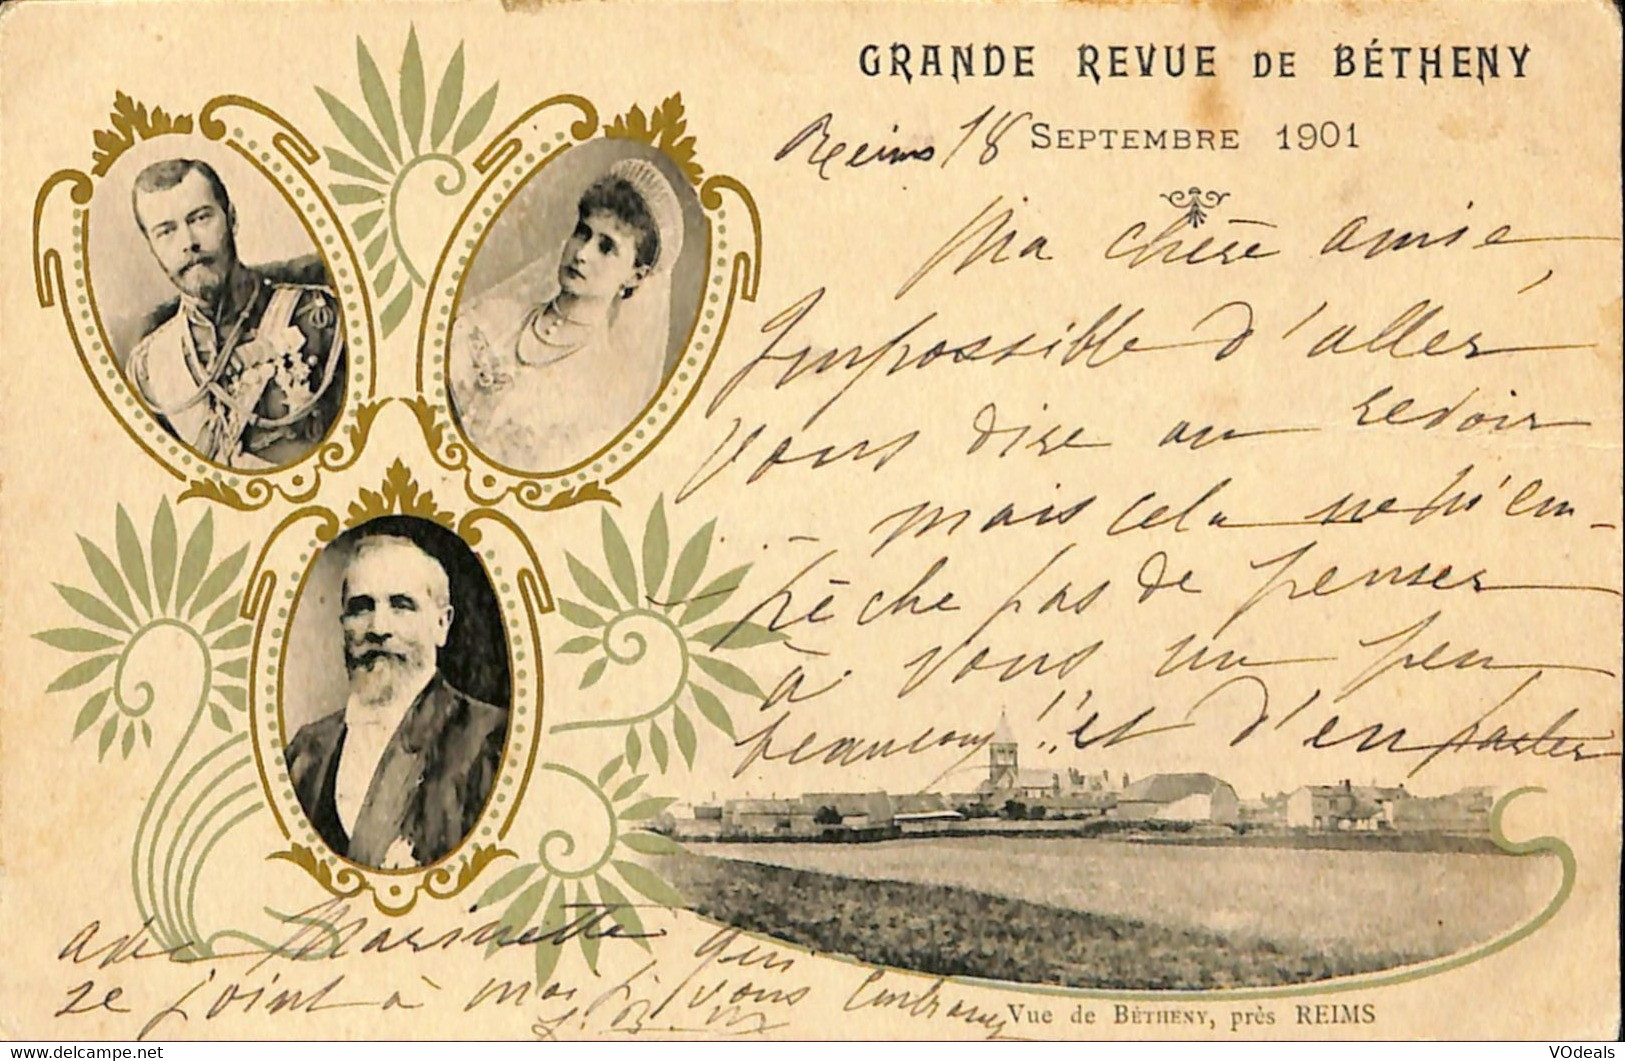 GRANDE REVUE DE BÉTHENY
Reims 18 SEPTEMBRE 1901
Ma chère amie,
Impossible d'aller
vous dire au revoir
- mais cela ne m'em-
pêche pas de penser
à vous un peu,
beaucoup!! et d'en parler
avec Marinette qui
se joint à moi pr vous embrasser
Vue de BÉTHENY, près REIMS
VOdeals